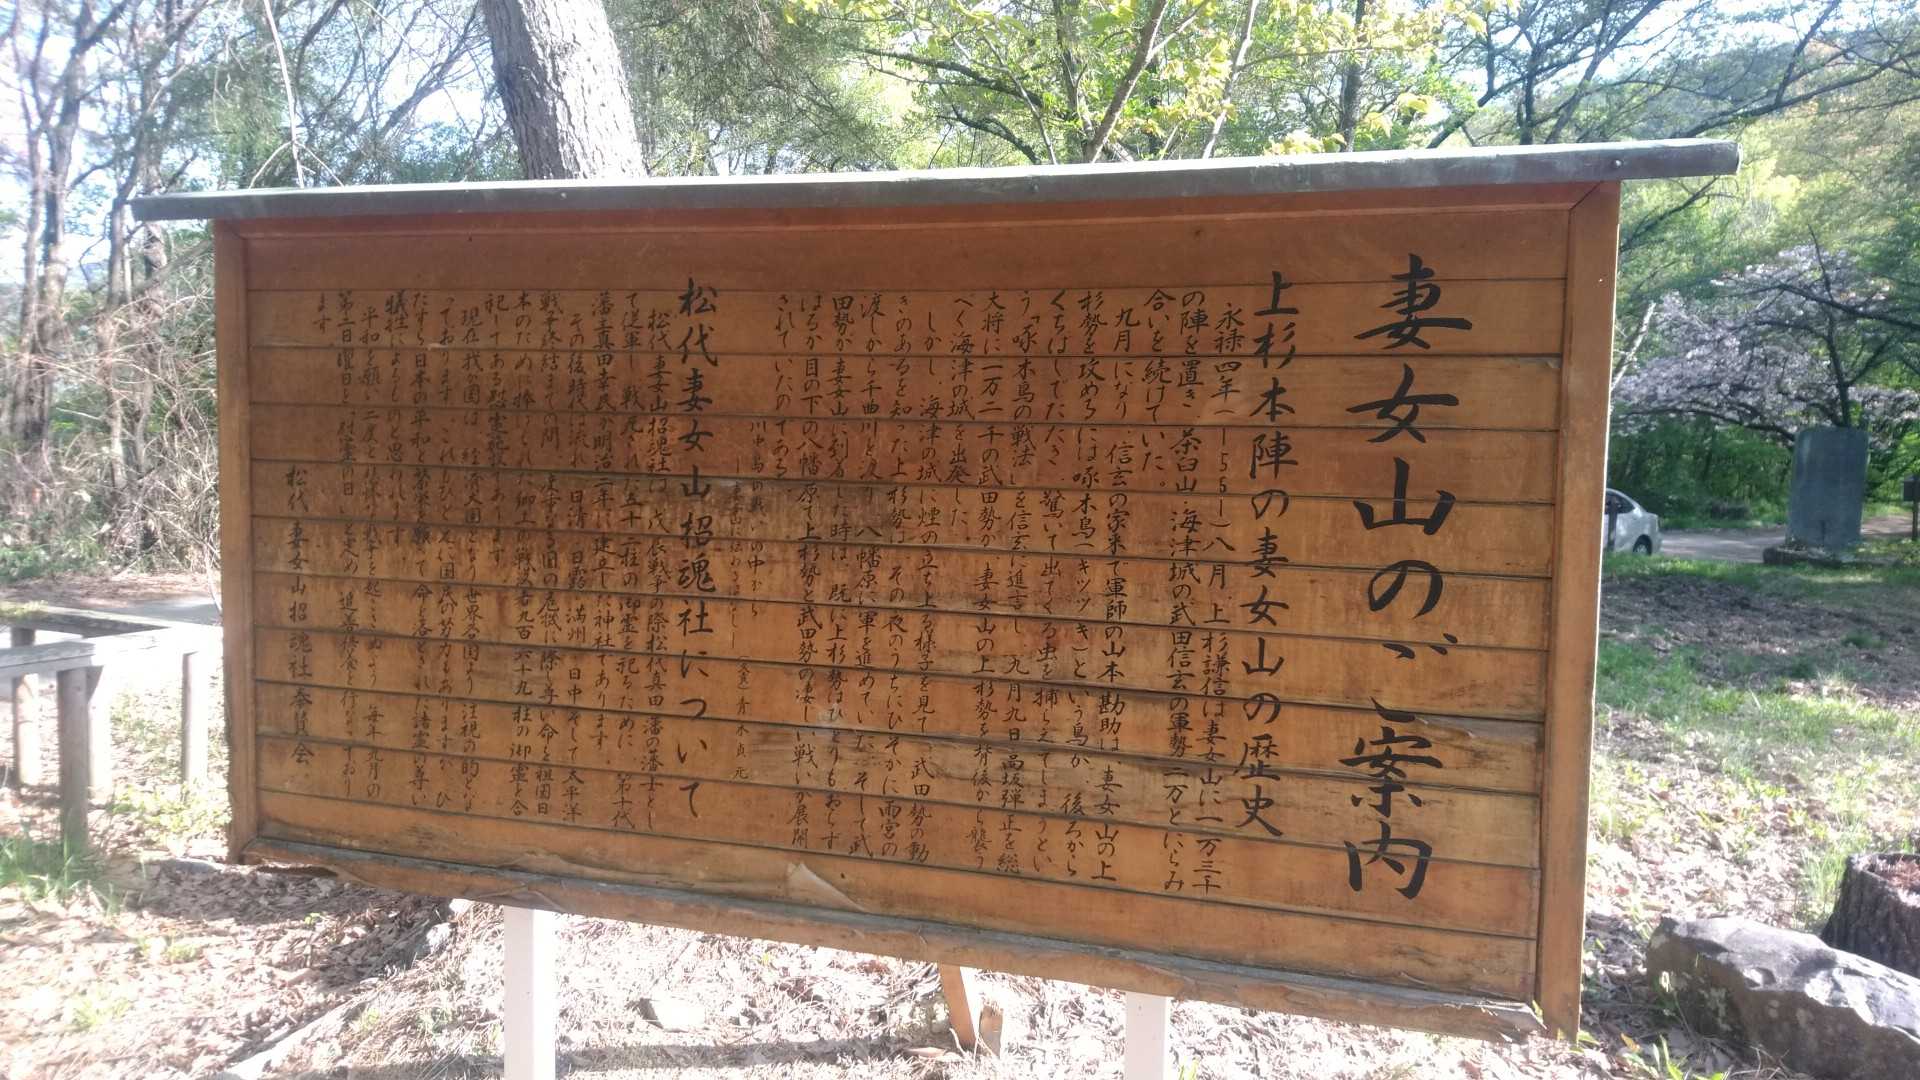 妻女山のご案内
上杉本陣の妻女山の歴史
永禄四年(一五五一)八月、上杉謙信は妻女山に一万三千
の陣を置き、茶臼山、海津城の武田信玄の軍勢二万とにらみ
合いを続けていた。
九月になり、信玄の家来で軍師の山本勘助は、妻女山の上
杉勢を攻めるには啄木鳥(キツツキ)という鳥が、後ろから
くちばしでたたき、驚いて出てくる虫を捕らえてしまうとい
う「啄木鳥の戦法」を信玄に進言し、九月九日高坂弾正を総
大将に一万二千の武田勢が、妻女山の上杉勢を背後から襲う
べく海津の城を出発した。
しかし、海津の城に煙の立ち上る様子を見て、武田勢の動
きのあるを知った上杉勢は、その夜のうちにひそかに雨宮の
渡しから千曲川を渡り、八幡原に軍を進めていた。そして武
田勢が妻女山に到着した時は、既に上杉勢はひとりもおらず
はるか目の下の八幡原で上杉勢と武田勢の凄しい戦いが展開
されていたのである。
川中島の戦い の中から
(文責) 青木貞元
松代妻女山招魂社について
松代妻女山招魂社は、戊辰戦争の際松代真田藩の藩士とし
て従軍し、戦死された五十二柱の御霊を祀るために、第十代
藩主真田幸民が明治二年に建立した神社であります。
その後時代は流れ、日清、日露、満州、日中そして太平洋
戦争終結までの間、重大なる国の危機に際し尊い命を祖国日
本のために捧げられた郷土の戦没者九百六十九柱の御霊を合
祀してある慰霊施設であります。
現在我が国は、経済大国となり世界各国より注視の的とな
っております。これもひとえに国民の努力もありますが、ひ
たすら日本の平和と繁栄を願って命を落とされた諸霊の尊い
犠牲によるものと思われます。
平和を願い二度と悲惨な戦争を起こさぬよう、毎年九月の
第二日曜日を「慰霊の日」と定め、追善供養を行なっており
ます。
松代 妻女山招魂社奉賛会